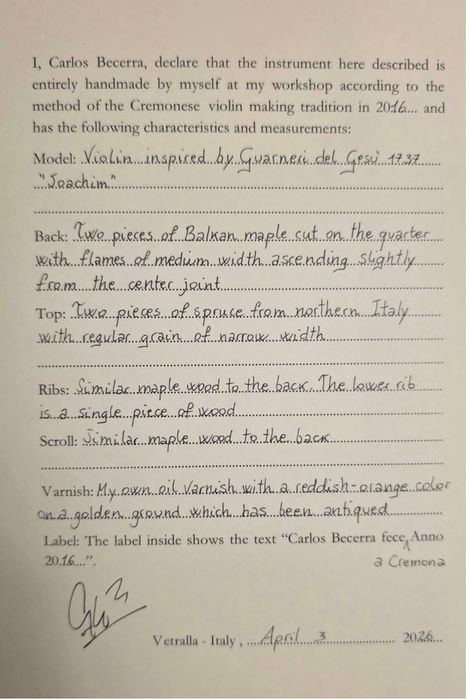 I, Carlos Becerra, declare that the instrument here described is
entirely handmade by myself at my workshop according to the
method of the Cremonese violin making tradition in 2016... and
has the following characteristics and measurements:
Model: Violin inspired by Guarneri del Gesù 1737
"Joachim"
Back: Two pieces of Balkan maple cut on the quarter
with flames of medium width ascending slightly
from the center joint
Top: Two pieces of spruce from northern Italy
with regular grain of narrow width
Ribs: Similar maple wood to the back. The lower rib
is a single piece of wood
Scroll: Similar maple wood to the back
Varnish: My own oil varnish with a reddish-orange color
on a golden ground which has been antiqued
Label: The label inside shows the text “Carlos Becerra fece Anno
a Cremona
2016....”.
Vetralla - Italy, April 3 2026...